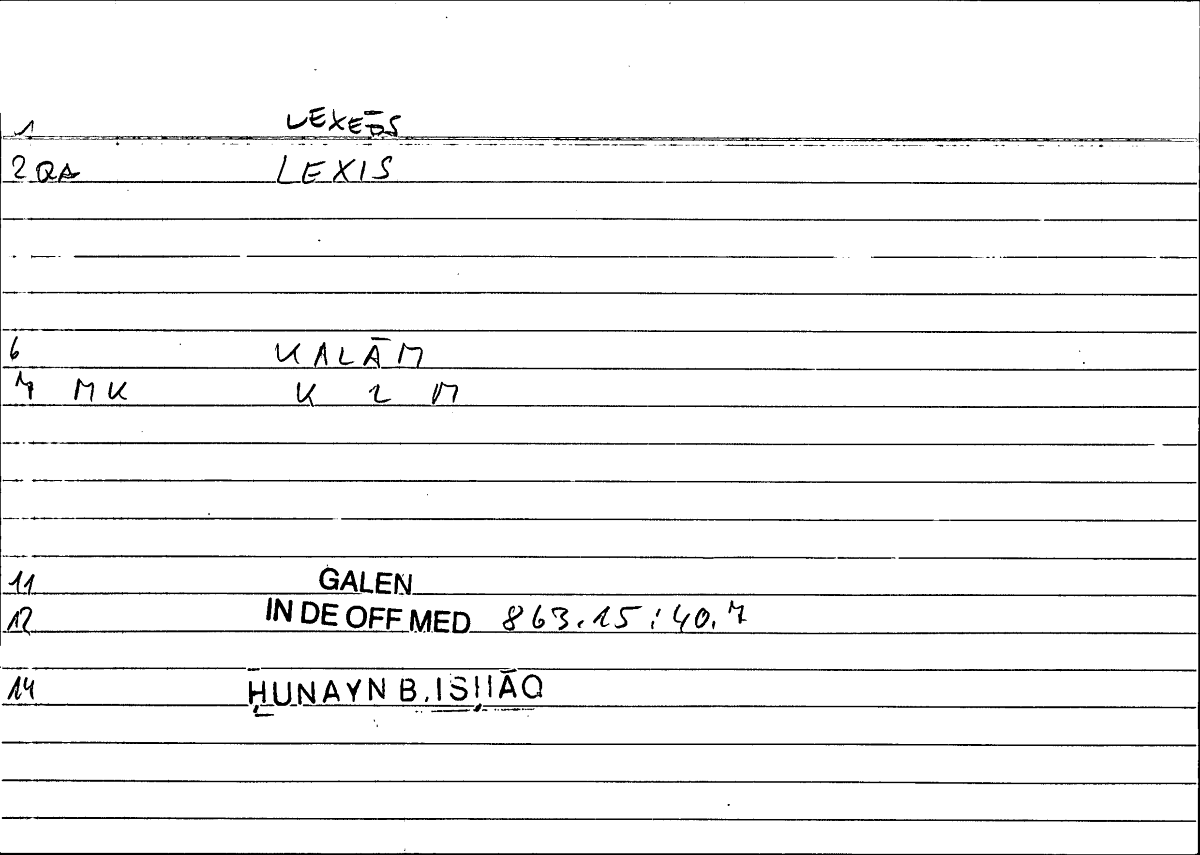 1 LEXEŌS
2 QA LEXIS
6 KALĀM
7 MK K L M
11 GALEN
12 IN DE OFF MED 863.15 : 40.7
14 ḤUNAYN B. ISḤĀQ